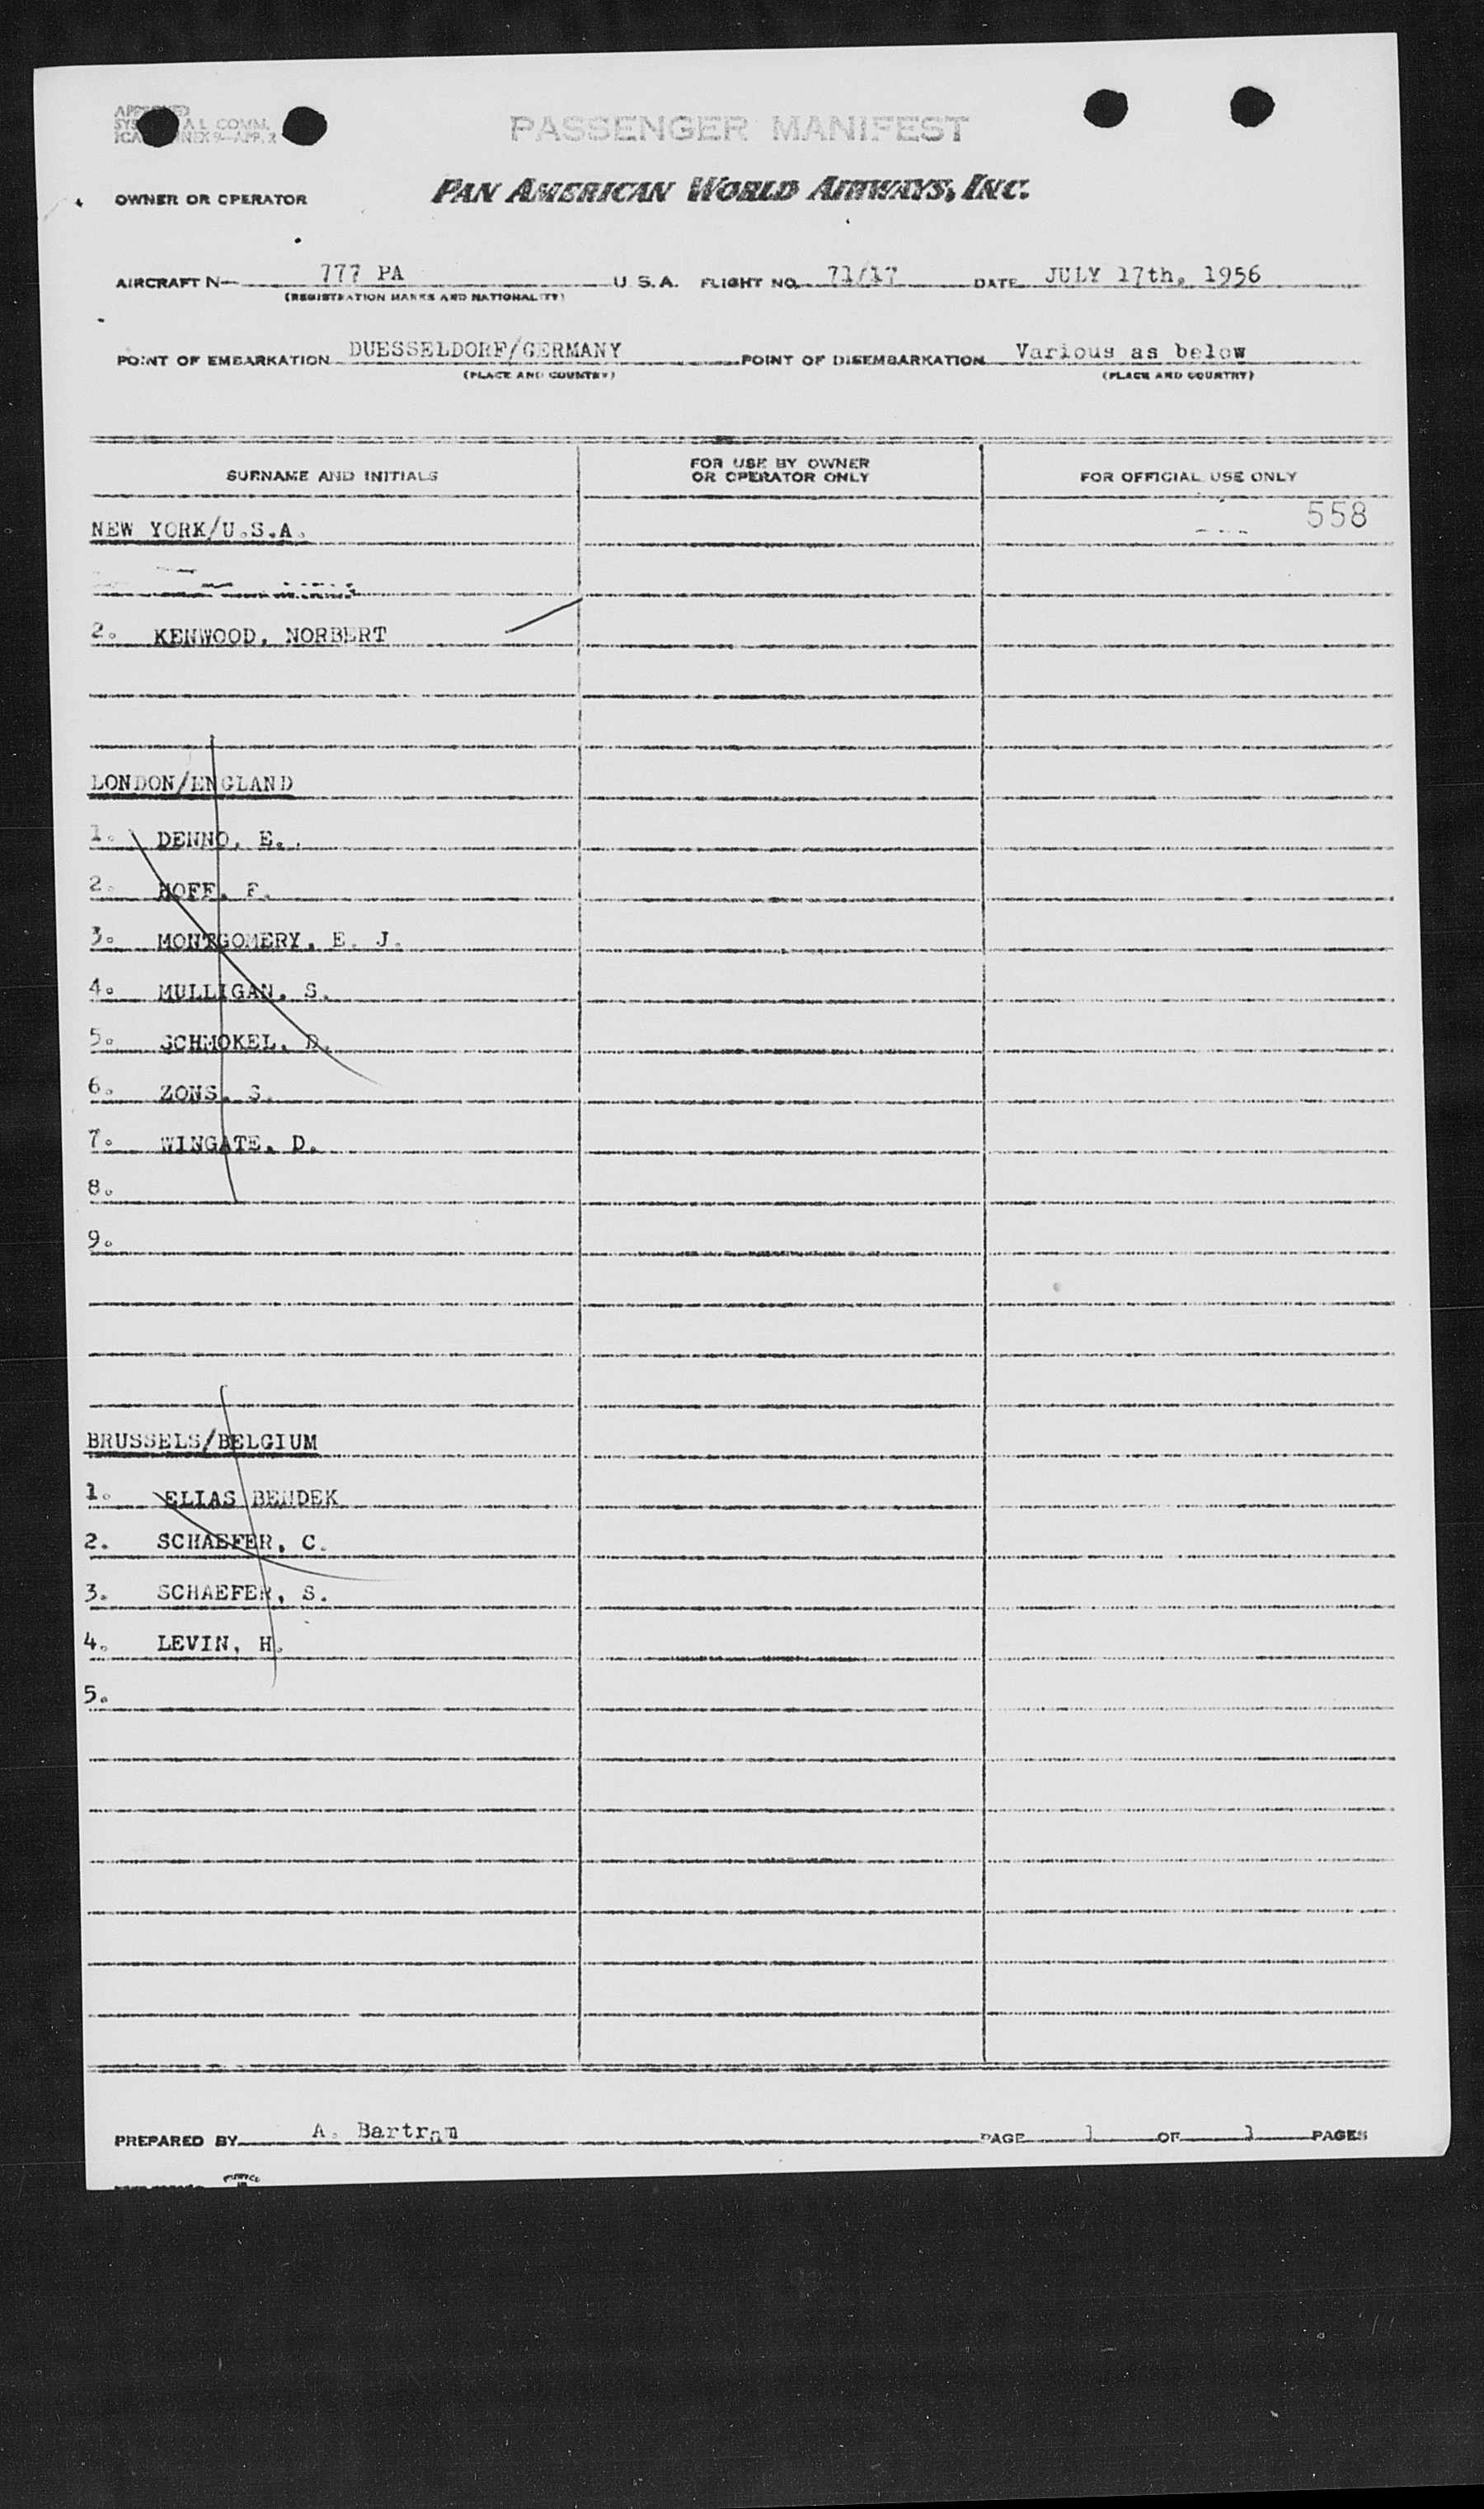 PASSENGER MANIFEST
OWNER OR OPERATOR PAN AMERICAN WORLD AIRWAYS, INC.
AIRCRAFT N— 777 PA U. S. A. FLIGHT NO. 71/17 DATE JULY 17th, 1956
(REGISTRATION MARKS AND NATIONALITY)
POINT OF EMBARKATION DUESSELDORF/GERMANY POINT OF DISEMBARKATION Various as below
(PLACE AND COUNTRY) (PLACE AND COUNTRY)
SURNAME AND INITIALS FOR USE BY OWNER OR OPERATOR ONLY FOR OFFICIAL USE ONLY
558
NEW YORK/U.S.A.
2. KENWOOD, NORBERT
LONDON/ENGLAND
1. DENNO, E.
2. HOFF, F.
3. MONTGOMERY, E. J.
4. MULLIGAN, S.
5. SCHMOKEL, D.
6. ZONS, S.
7. WINGATE, D.
8.
9.
BRUSSELS/BELGIUM
1. ELIAS BENDEK
2. SCHAEFER, C.
3. SCHAEFER, S.
4. LEVIN, H.
5.
PREPARED BY A. Bartram PAGE 1 OF 1 PAGES